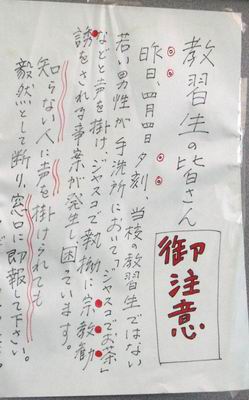 教習生の皆さん
御注意
昨日、四月四日夕刻、当校の教習生ではない
若い男性が手洗所において「ジャスコでお茶」
などと声を掛け、ジャスコで執拗に宗教勧
誘をされる事案が発生し困っています。
知らない人に声を掛けられても
毅然として断り、窓口に即報して下さい。